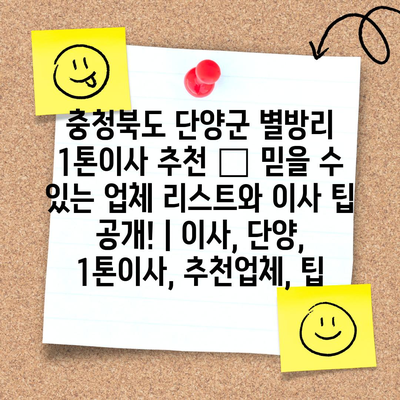 충청북도 단양군 별방리
1톤이사 추천 □ 믿을 수
있는 업체 리스트와 이사 팁
공개! | 이사, 단양,
1톤이사, 추천업체, 팁